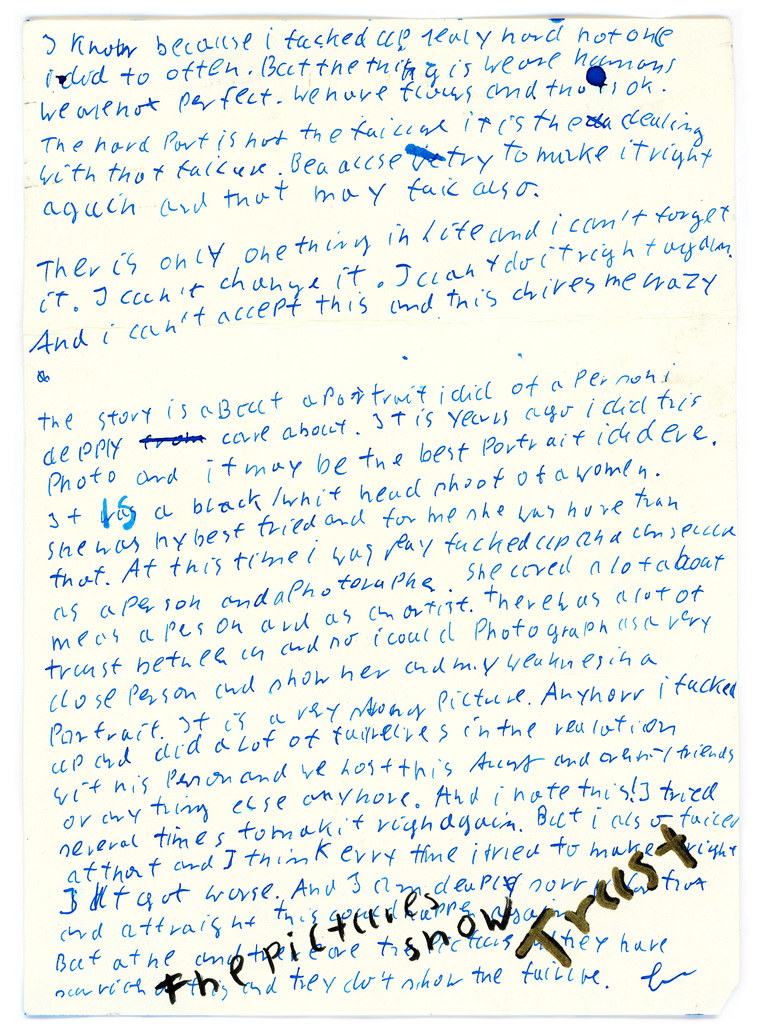 I know because i fucked up realy hard not one
i did to often. But the thing is we are humans
we are not perfect. We have flaws and that is ok.
The hard Part is not the failure it is the dealing
with that failure. Beacuse try to make it right
again and that may fail also.
Ther is only one thing in Life and i can't forget
it. I can't change it. I can't do it right again.
And i can't accept this and this drives me crazy
the story is about a Portrait i did of a Person i
deeply care about. It is years ago i did this
Photo and it may be the best Portrait i did ever.
It is a black/whit head shoot of a women.
she was my best friend and for me she was more than
that. At this time i was realy fucked up and
as a Person and a Photographe. She cared a lot about
me as a Person and as an artist. There was a lot of
trust between us and so i could Photograph as a very
close Person and show her and my weaknes in a
Portrait. It is a very strong Picture. Anyhow i fucked
up and did a lot of failures in the realation
with his Person and we lost this trust and friends
or any thing else anymore. And i hate this! I tried
several times to mak it righ again. But i also failed
at that and I think erry time i tried to make right
I it got worse. And I am deaply sorry for that
and this could happen again.
But at he and there are the Pictures they have
and they don't show the failure.
the pictures show Trust